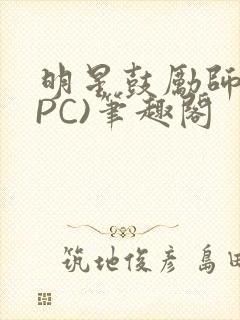 明星鼓励師
PC)筆趣閣
筑地俊彦 島田